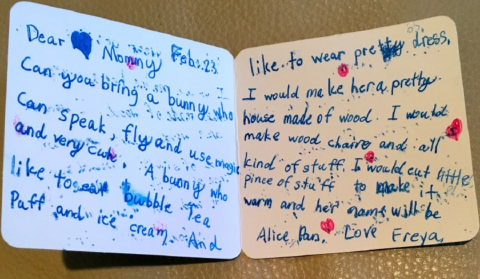 Dear Mommy Feb. 23
Can you bring a bunny who
can speak, fly and use magic
and very cute. A bunny who
like to eat bubble Tea
Puff and ice cream. And
like to wear pretty dress.
I would make her a pretty
house made of wood. I would
make wood chairs and all
kind of stuff. I would cut little
pince of stuff to make it
warm and her name will be
Alice Pan. Love Freya.